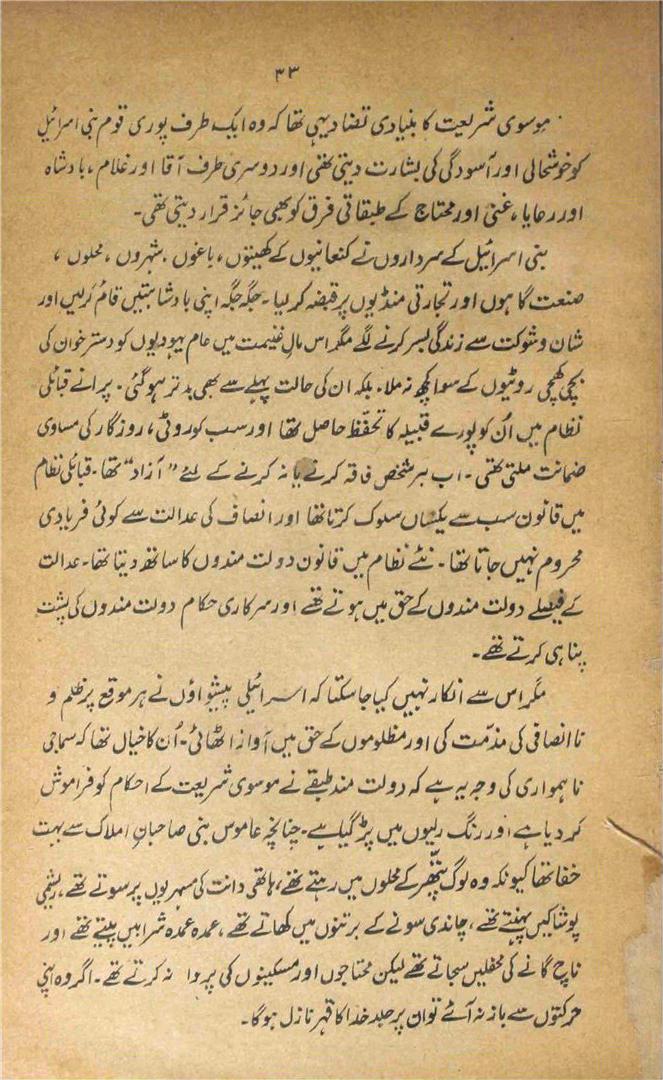 ۳۳
موسوی شریعت کا بنیادی تضاد یہی تھا کہ وہ ایک طرف پوری قوم بنی اسرائیل
کو خوشحالی اور آسودگی کی بشارت دیتی تھی اور دوسری طرف آقا اور غلام، بادشاہ
اور رعایا، غنی اور محتاج کے طبقاتی فرق کو بھی جائز قرار دیتی تھی۔
بنی اسرائیل کے سرداروں نے کنعانیوں کے کھیتوں، باغوں، شہروں، محلوں،
صنعت گاہوں اور تجارتی منڈیوں پر قبضہ کر لیا۔ جگہ جگہ اپنی بادشاہتیں قائم کر لیں اور
شان و شوکت سے زندگی بسر کرنے لگے مگر اس مالِ غنیمت میں عام یہودیوں کو دسترخوان کی
بچی کھچی روٹیوں کے سوا کچھ نہ ملا۔ بلکہ ان کی حالت پہلے سے بھی بدتر ہو گئی۔ پرانے قبائلی
نظام میں اُن کو پورے قبیلہ کا تحفّظ حاصل تھا اور سب کو روٹی، روزگار کی مساوی
ضمانت ملتی تھی۔ اب ہر شخص فاقہ کرنے یا نہ کرنے کے لئے "آزاد" تھا۔ قبائلی نظام
میں قانون سب سے یکساں سلوک کرتا تھا اور انصاف کی عدالت سے کوئی فریادی
محروم نہیں جاتا تھا۔ نئے نظام میں قانون دولت مندوں کا ساتھ دیتا تھا۔ عدالت
کے فیصلے دولت مندوں کے حق میں ہوتے تھے اور سرکاری حکام دولت مندوں کی پشت
پناہی کرتے تھے۔
مگر اس سے انکار نہیں کیا جا سکتا کہ اسرائیلی پیشواؤں نے ہر موقع پر ظلم و
نا انصافی کی مذمّت کی اور مظلوموں کے حق میں آواز اٹھائی۔ اُن کا خیال تھا کہ سماجی
ناہمواری کی وجہ یہ ہے کہ دولت مند طبقے نے موسوی شریعت کے احکام کو فراموش
کر دیا ہے اور رنگ رلیوں میں پڑ گیا ہے۔ چنانچہ عاموس بنی صاحبانِ املاک سے بہت
خفا تھا کیونکہ وہ لوگ پتّھر کے محلوں میں رہتے تھے، ہاتھی دانت کی مسہریوں پر سوتے تھے، ریشمی
پوشاکیں پہنتے تھے، چاندی سونے کے برتنوں میں کھاتے تھے، عمدہ عمدہ شرابیں پیتے تھے اور
ناچ گانے کی محفلیں سجاتے تھے لیکن محتاجوں اور مسکینوں کی پروا نہ کرتے تھے۔ اگر وہ اپنی
حرکتوں سے باز نہ آئے تو ان پر جلد خدا کا قہر نازل ہوگا۔